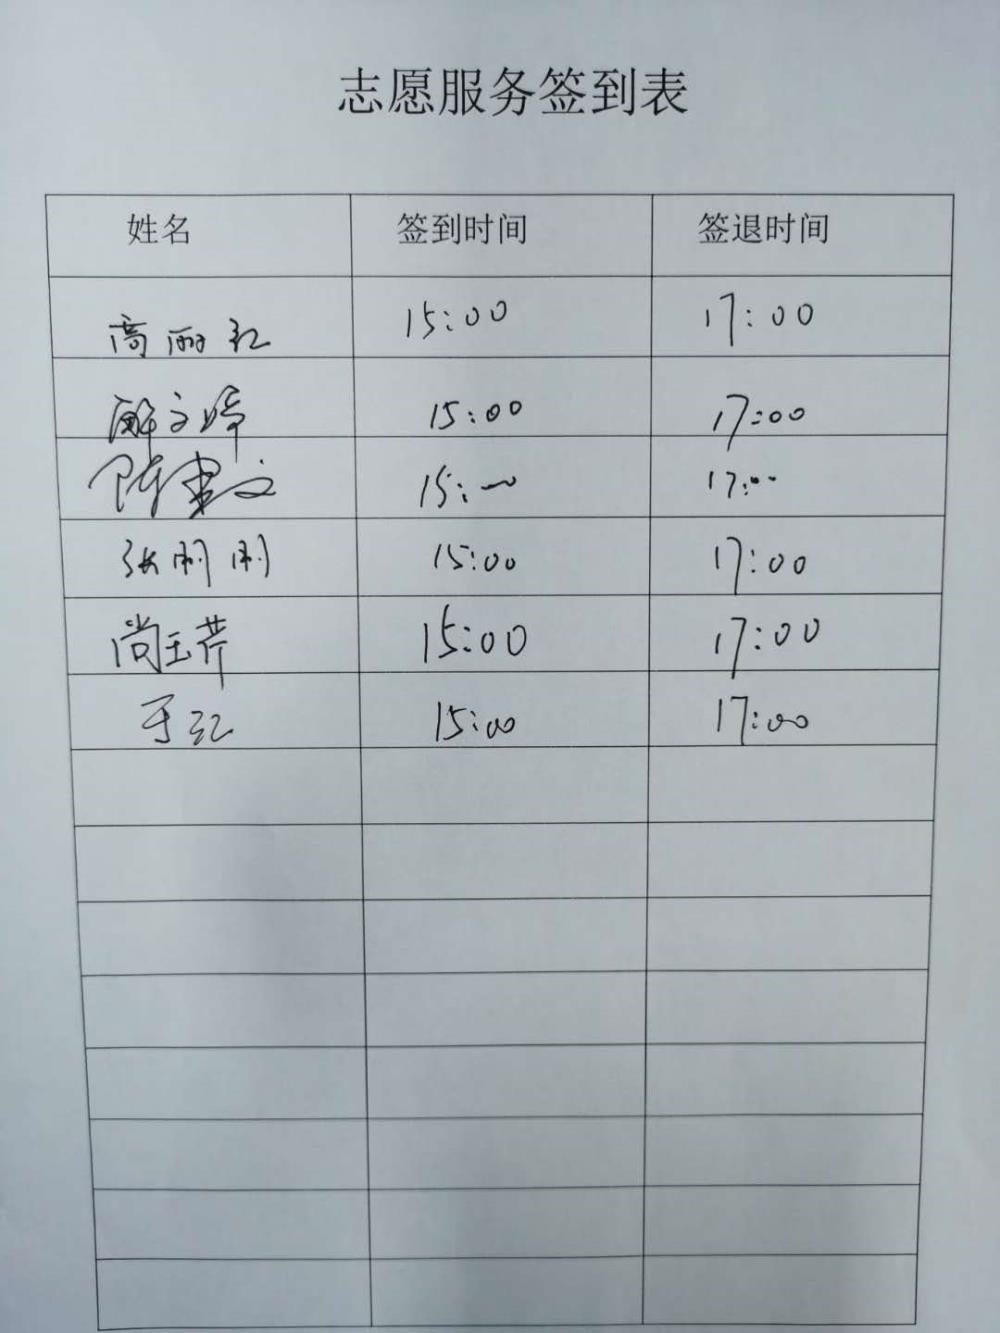 志愿服务签到表
姓名 签到时间 签退时间
高丽红 15:00 17:00
解文婷 15:00 17:00
陈肃文 15:00 17:00
张刚刚 15:00 17:00
尚玉芹 15:00 17:00
于红 15:00 17:00